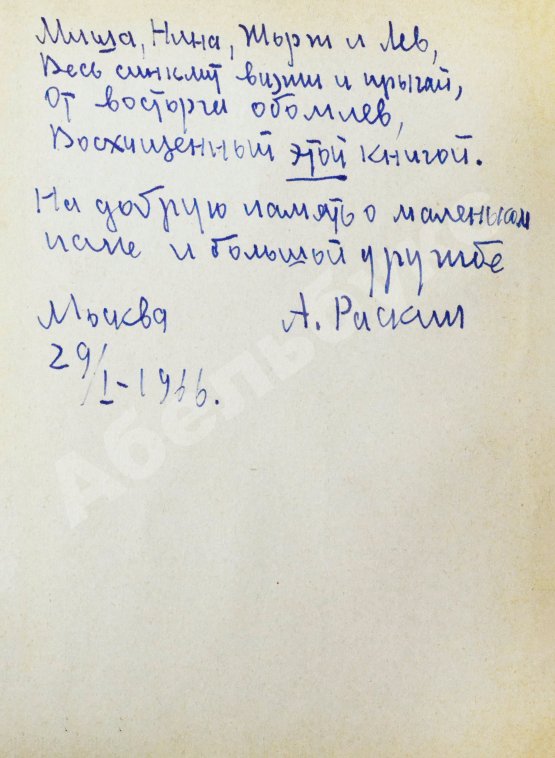 Миша, Нина, Жорж и Лев,
Весь синклит визжи и прыгай,
От восторга обомлев,
Восхищенный этой книгой.
На добрую память о маленьком
папе и большой дружбе
Москва А. Раскин
29/I-1966.
Абельбук